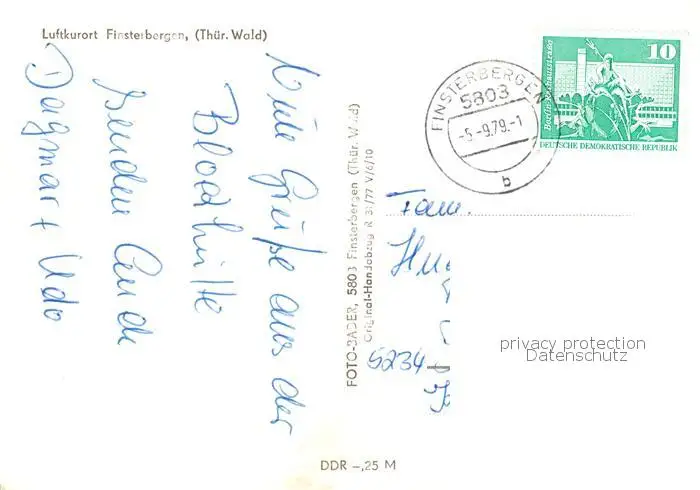 Luftkurort Finsterbergen, (Thür. Wald)
Viele Grüße aus der
Blockhütte
senden Euch
Dagmar + Udo
FOTO-BADER, 5803 Finsterbergen (Thür. Wald)
Original-Handabzug R 31/77 V/6/10
FINSTERBERGEN
5803
-5.-9.79.-1
b
10
DEUTSCHE DEMOKRATISCHE REPUBLIK
Fam.
5234
privacy protection
Datenschutz
DDR -,25 M